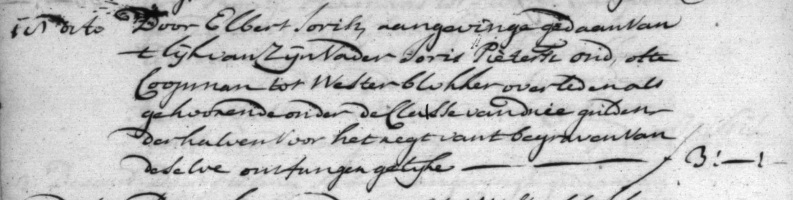 15 dito Door Elbert Joriks aangevinge gedaan van
t lijk van Zijn Vader Joris Pieters oud, ofte
Coopman tot Westerblokker overleden als
gehoorende onder de Classe van drie gulden
derhalven voor het regt vant begraven van
deselve ontfangen gelijke — — 3:—: